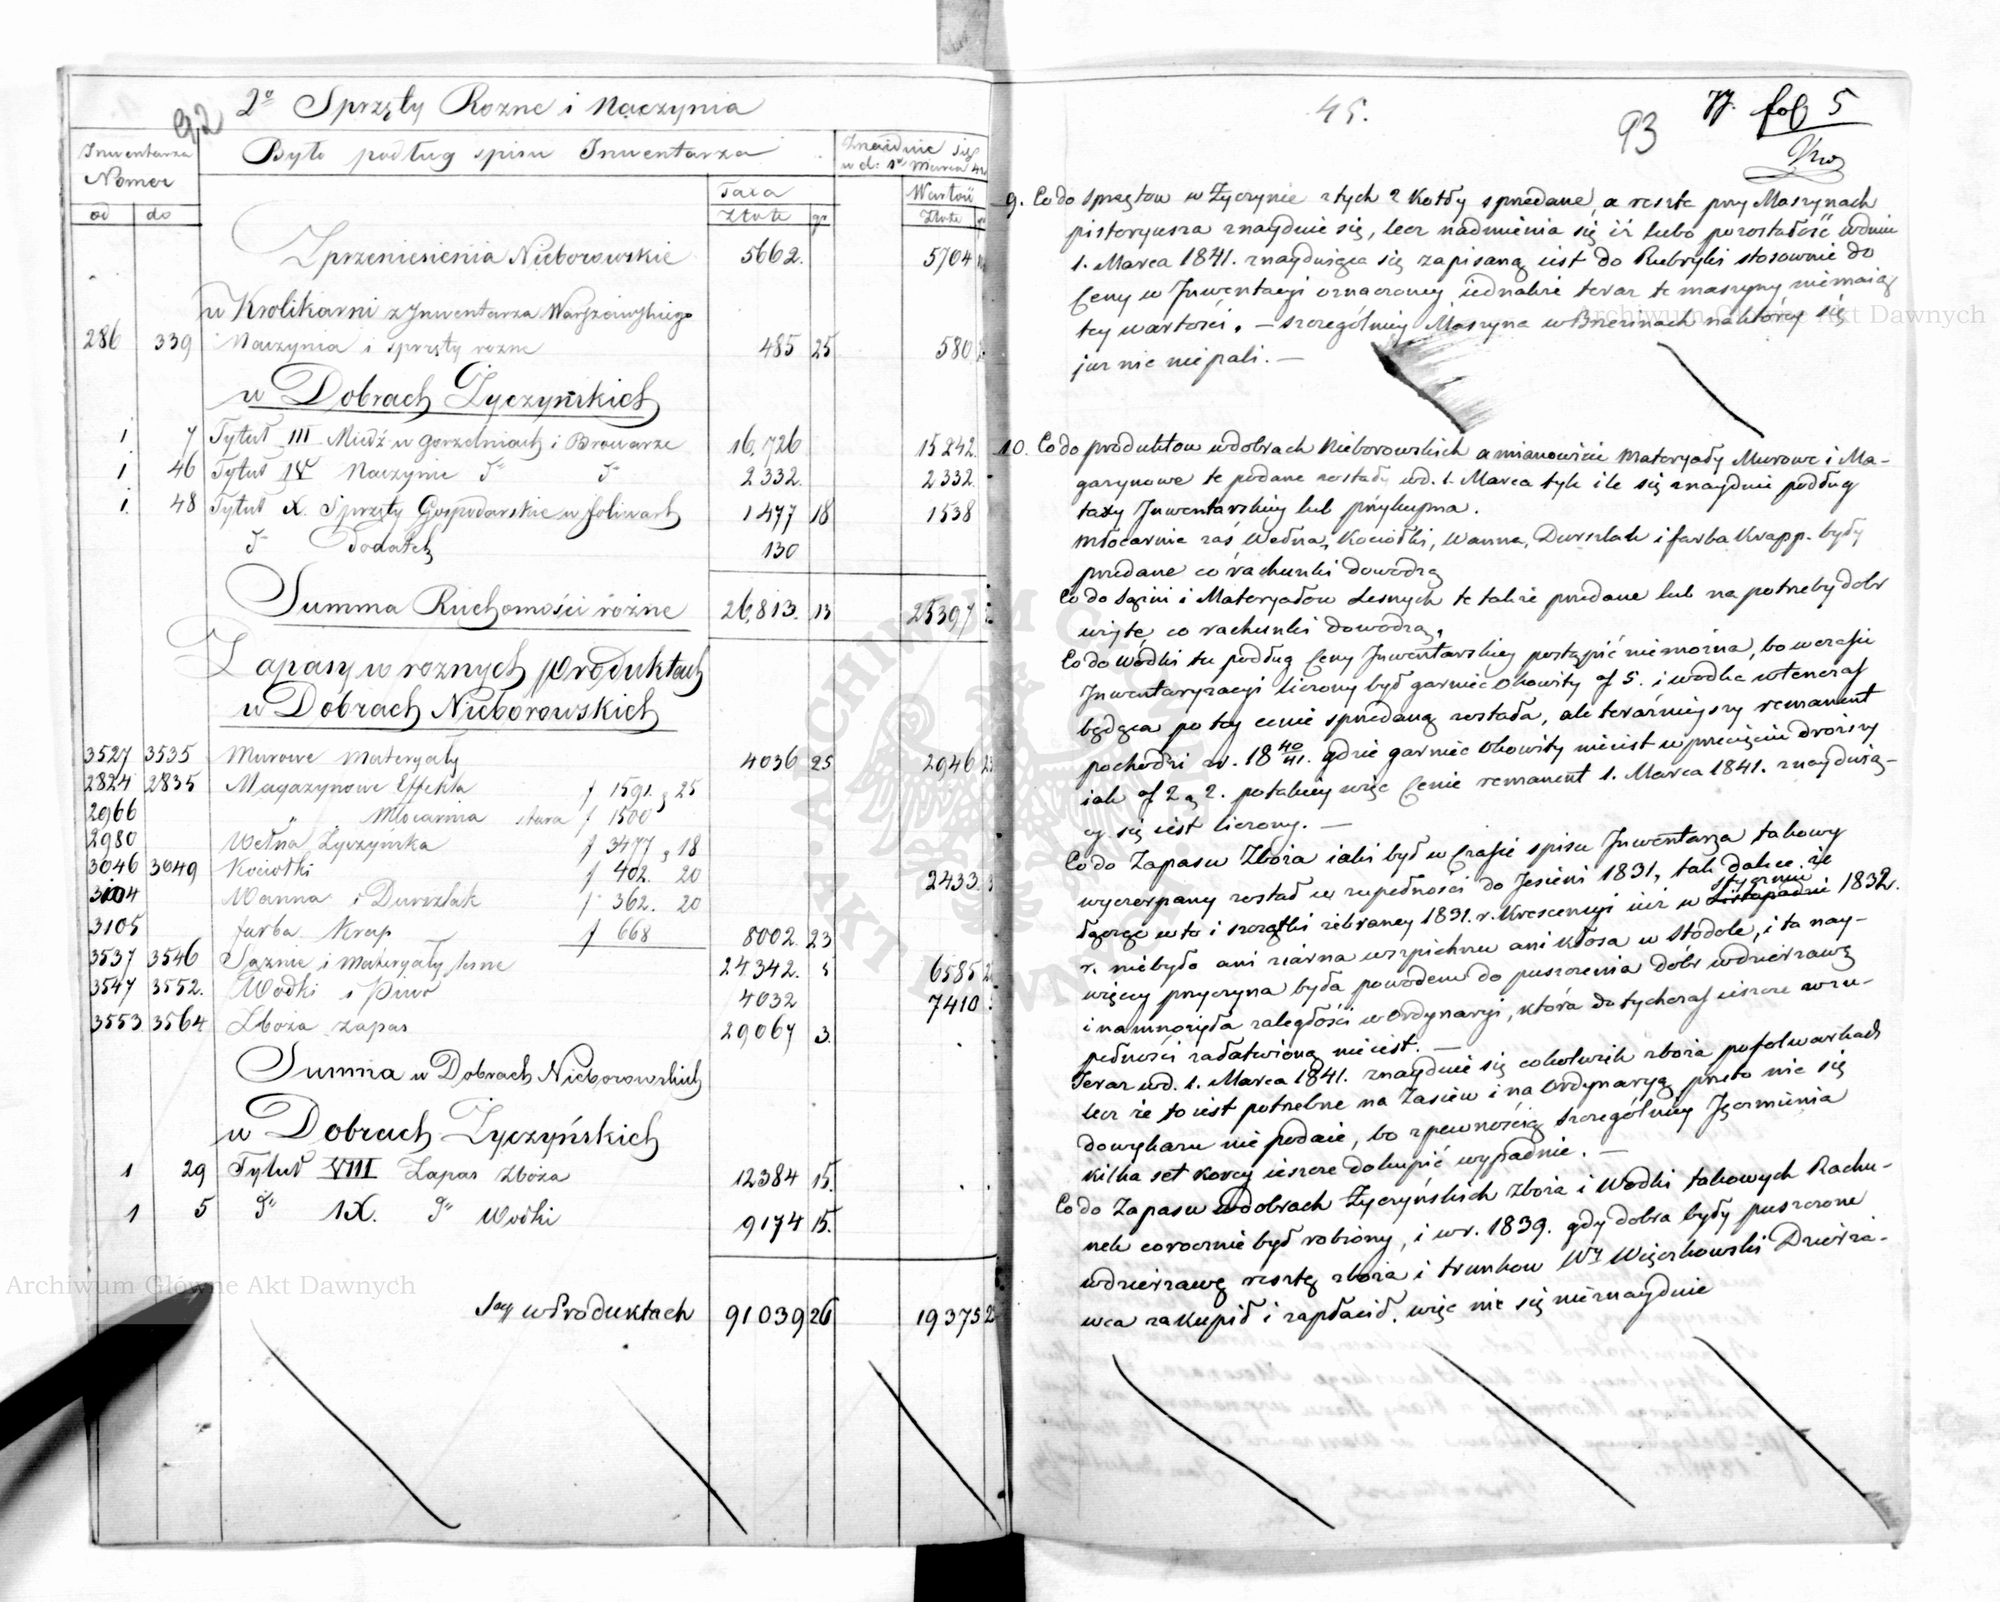 92
2º Sprzęty Rozne i Naczynia
Inwentarza Nomer
Było podług spisu Inwentarza
Znaidnie się w d: 1º Marca 41
Taxa
Wartość
od do
Złote gr
Złote
Z przeniesienia Nieborowskie 5662. 5704
w Krolikarni z Inwentarza Warszawskiego
286 339 Naczynia i sprzęty rozne 485 25 580
w Dobrach Życzyńskich
1 7 Tytuł III Miedź w Gorzelniach i Browarze 16,726 15242.
1 46 Tytuł IV Naczynie dº dº 2332. 2332.
1. 48 Tytuł X. Sprzęty Gospodarskie w folwark 1477 18 1538
dº Dodatek 130
Summa Ruchomości różne 26,813. 13 25397
Zapasy w roznych produktach
w Dobrach Nieborowskich
3527 3535 Murowe materyały 4036 25 2946
2824 2835 Magazynowe Effekta f 1591. 25
2966 " Młocarnia stara f 1500
2980 Wełna Życzyńska f 3477 18
3046 3049 Kociołki f 402. 20 2433.
3104 Wanna i Durszlak f 362. 20
3105 farba Krap f 668 8002. 23
3537 3546 Sążnie i materyały lesne 24342. 5 6585
3547 3552. Wodki i Piwo 4032 7410
3553 3564 Zboża zapas 29067 3.
Summa w Dobrach Nieborowskich
w Dobrach Życzyńskich
1 29 Tytuł VIII Zapas zboża 12384 15.
1 5 dº IX. dº Wodki 9174 15.
w Produktach 91039 26 19375
45.
93
77. fol 5
9. Co do sprzętow w Życzynie z tych 2 Kotły sprzedane, a reszta przy Maszynach
pistoryusza znayduie się, lecz nadmienia się iż lubo pozostałość w dniu
1. Marca 1841. znayduiąca się zapisaną iest do Rubryki stosownie do
Ceny w Inwentacyi oznaczoney, iednakże teraz te maszyny niemaią
tey wartości. – szczególniey Maszyna w Brzezinach na ktorey się
już nic nie pali. –
10. Co do produktow w dobrach Nieborowskich a mianowicie Materyały Murowe i Ma-
gazynowe te podane zostały w d. 1. Marca tyle ile się znayduie podług
taxy Inwentarskiey lub przykupna.
Młocarnie zaś Wełna, Kociołki, Wanna, Durszlak i farba Krapp. były
przedane co rachunki dowodzą
Co do Sągini i Materyałow Lesnych te także przedane lub na potrzeby dobr
użyte co rachunki dowodzą.
Co do Wodki tu podług Ceny Inwentarskiey postąpić niemożna, bo w czasie
Inwentaryzacyi liczony był garniec Okowity zł 5. i wodka wtenczas
będąca po tey cenie sprzedaną została, ale teraźnieyszy remanent
pochodzi z r. 1840/41. gdzie garniec Okowity nieiest w przecięciu droższy
iak zł 2 g 2. po takiey więc Cenie remanent 1. Marca 1841. znayduią-
cy się iest liczony. –
Co do Zapasu Zboża iaki był w Czasie spisu Inwentarza takowy
wyczerpany został w zupełności do Jesieni 1831, tak dalece że
łącząc w to i szczątki zebraney 1831. r. Krescencyi iuż w Listopadzie Styczniu 1832.
r. niebyło ani ziarna w szpichrzu ani kłosa w stodole, i ta nay-
więcey przyczyna była powodem do puszczenia dobr w dzierżawę
i namnożyła zaległości w Ordynaryi, która dotychczas ieszcze w zu-
pełności załatwioną nieiest. –
Teraz w d. 1. Marca 1841. znayduie się cokolwiek zboża po folwarkach
lecz że to iest potrzebne na Zasiew i na Ordynaryą przeto nic się
do wykazu nie podaie, bo z pewnością szczególniey Jęczmienia
kilka set Korcy ieszcze dokupić wypadnie. –
Co do Zapasu w dobrach Życzyńskich zboża i Wodki takowych Rachu-
nek corocznie był robiony, i w r. 1839. gdy dobra były puszczone
w dzierżawę resztę zboża i trunkow Wy Więckowski Dzierża-
wca zakupił i zapłacił. więc nic się nieznayduie
Archiwum Główne Akt Dawnych
Archiwum Główne Akt Dawnych